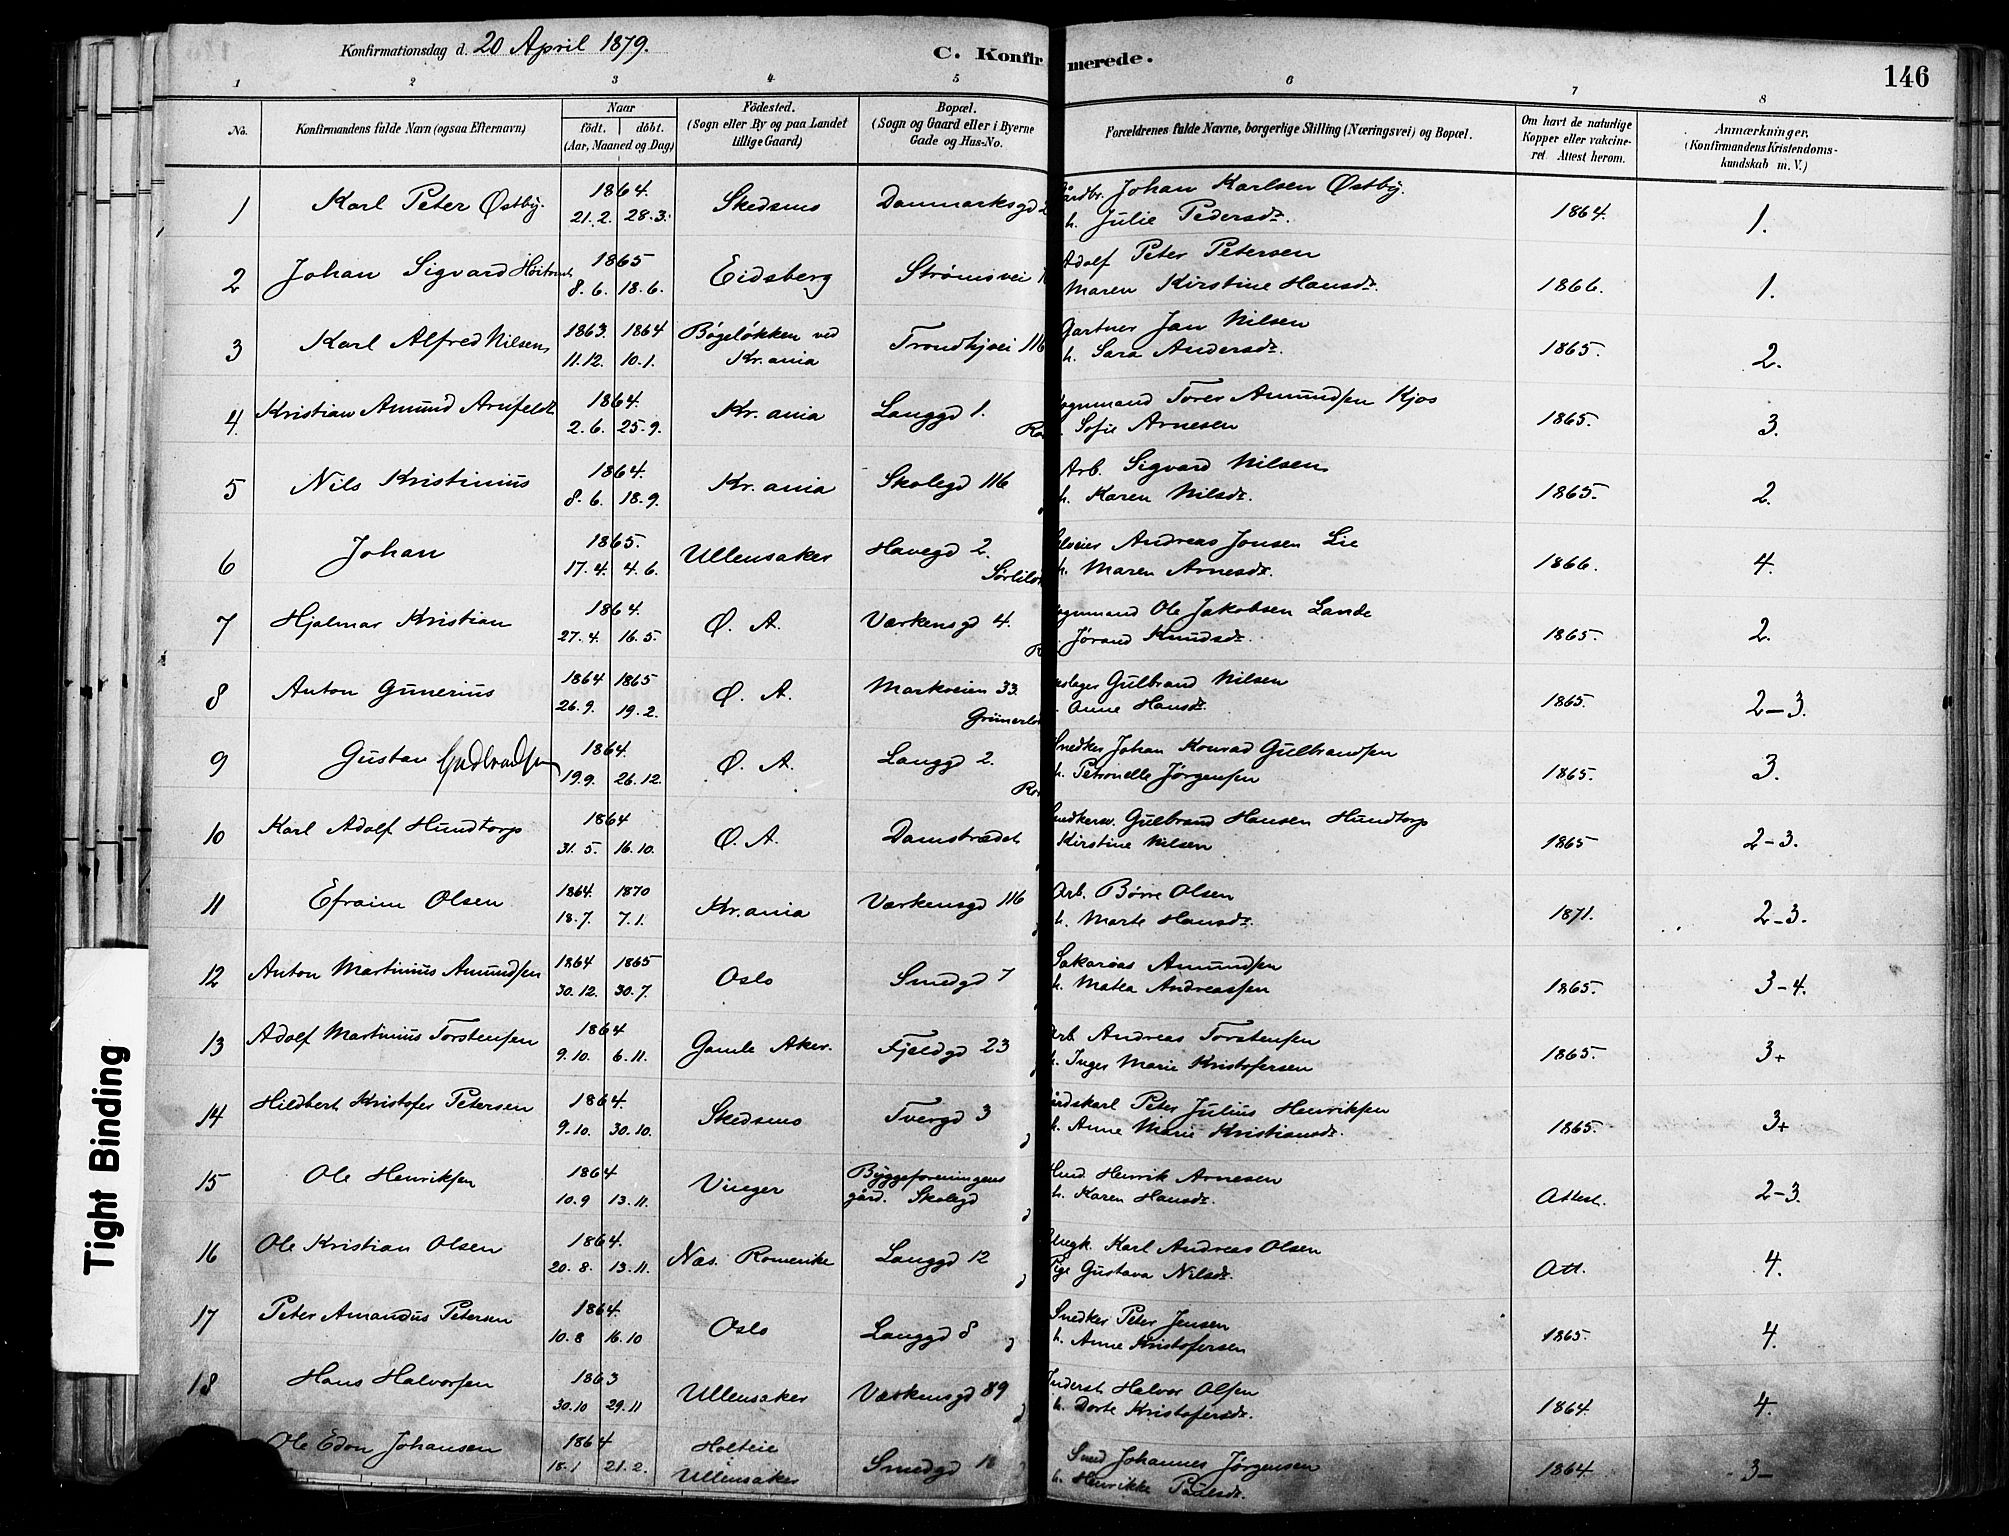 Konfirmationsdag d. 20 April 1879.
C. Konfirmerede.
146
1 2 3 4 5 6 7 8
No.
Konfirmandens fulde Navn (ogsaa Efternavn)
Naar
födt. döbt.
(Aar, Maaned og Dag)
Födested.
(Sogn eller By og paa Landet
tillige Gaard)
Bopæl.
(Sogn og Gaard eller i Byerne
Gade og Hus-No.
Forældrenes fulde Navne, borgerlige Stilling (Næringsvei) og Bopæl.
Om havt de naturlige
Kopper eller vakcine-
ret Attest herom.
Anmærkninger.
(Konfirmandens Kristendoms-
kundskab m. V.)
1 Karl Peter Østby. 1864. 21.2. 28.3. Skedsmo Danmarksgd 2 Johan Karlsen Østby. 1864. 1.
h. Julie Pedersdr.
2 Johan Sigvard 1865 8.6. 18.6. Eidsberg Strømsvei Adolf Peter Petersen 1866. 1.
Maren Kirstine Hansdr.
3 Karl Alfred Nilsen 1863. 1864 11.12. 10.1. Bøgeløkken ved Kr.ania Trondhjvei 116 Gartner Jan Nilsen 1865. 2.
h. Sara Andersdr.
4. Kristian Amund Arnfeldt 1864. 2.6. 25.9. Kr.ania Langgd 1. Torer Amundsen Kjos 1865. 3.
Sofie Arnesen
5 Nils Kristinius 1864. 8.6. 18.9. Kr.ania Skolegd 116 Arb. Sigvard Nilsen 1865. 2.
h. Karen Nilsdr.
6 Johan 1865. 17.4. 4.6. Ullensaker Havegd 2. Andreas Jonsen Lie 1866. 4.
h. Maren Arnesdr.
7 Hjalmar Kristian 1864. 27.4. 16.5. Ø. A. Værkensgd 4. Ole Jakobsen Lande 1865. 2.
Jørand Knudsdr.
8 Anton Gunerius 1864 1865 26.9. 19.2. Ø. A. Markveien 33. Gulbrand Nilsen 1865. 2-3.
Anne Hansdr.
9 Gustav Gudbrandsen 1864. 19.9. 26.12. Ø. A. Langgd 2. Snedker Johan Konrad Gulbrandsen 1865. 3.
h. Petronelle Jørgensen
10 Karl Adolf Hundtorp 1864 31.5. 16.10. Ø. A. Damstrædet Gulbrand Hansen Hundtorp 1865 2-3.
Kirstine Nilsen
11 Efraim Olsen 1864. 1870 18.7. 7.1. Kr.ania Værkensgd 116 Arb. Børre Olsen 1871. 2-3.
h. Marte Hansdr.
12 Anton Martinius Amundsen 1864 1865 30.12. 30.7. Oslo Smedgd 7 Sakarias Amundsen 1865. 3-4.
h. Matea Andreassen
13 Adolf Martinius Torstensen 1864 9.10. 6.11. Gamle Aker. Fjeldgd 23 Arb. Andreas Torstensen 1865. 3+
h. Inger Marie Kristofersen
14 Hildbert Kristofer Petersen 1864. 9.10. 30.10. Skedsmo Tvergd 3 Peter Julius Henriksen 1865. 3+
h. Anne Marie Kristiansdr.
15 Ole Henriksen 1864 10.9 13.11. Vinger Byggeforeningens gård. Skolegd Henrik Arnesen Attest. 2-3.
h. Karen Hansdr.
16 Ole Kristian Olsen 1864. 20.8. 13.11. Næs. Romerike Langgd 12 Ungk. Karl Andreas Olsen Att. 4.
Pige Gustava Nilsdr.
17 Peter Amandus Petersen 1864. 10.8 16.10 Oslo Langgd 8 Snedker Peter Jensen 1865. 4.
h. Anne Kristofersen
18 Hans Halvorsen 1863 30.10 29.11 Ullensaker Værkensgd 89 Inderst Halvor Olsen 1864. 4.
h. Dorte Kristofersdr.
Ole Edon Johansen 1864 18.1 21.2. Holteie Ullensaker Smedgd 18 Smed Johannes Jörgensen 1864. 3-
h. Henrikke Pedersdr.
Tight Binding